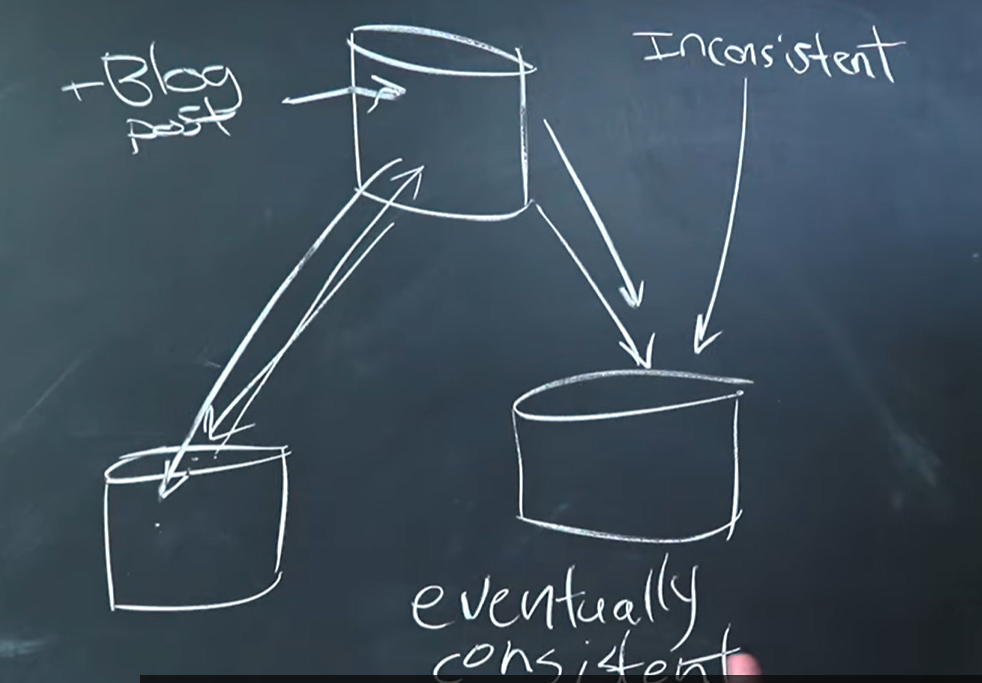 +Blog
post
Inconsistent
eventually
consistent